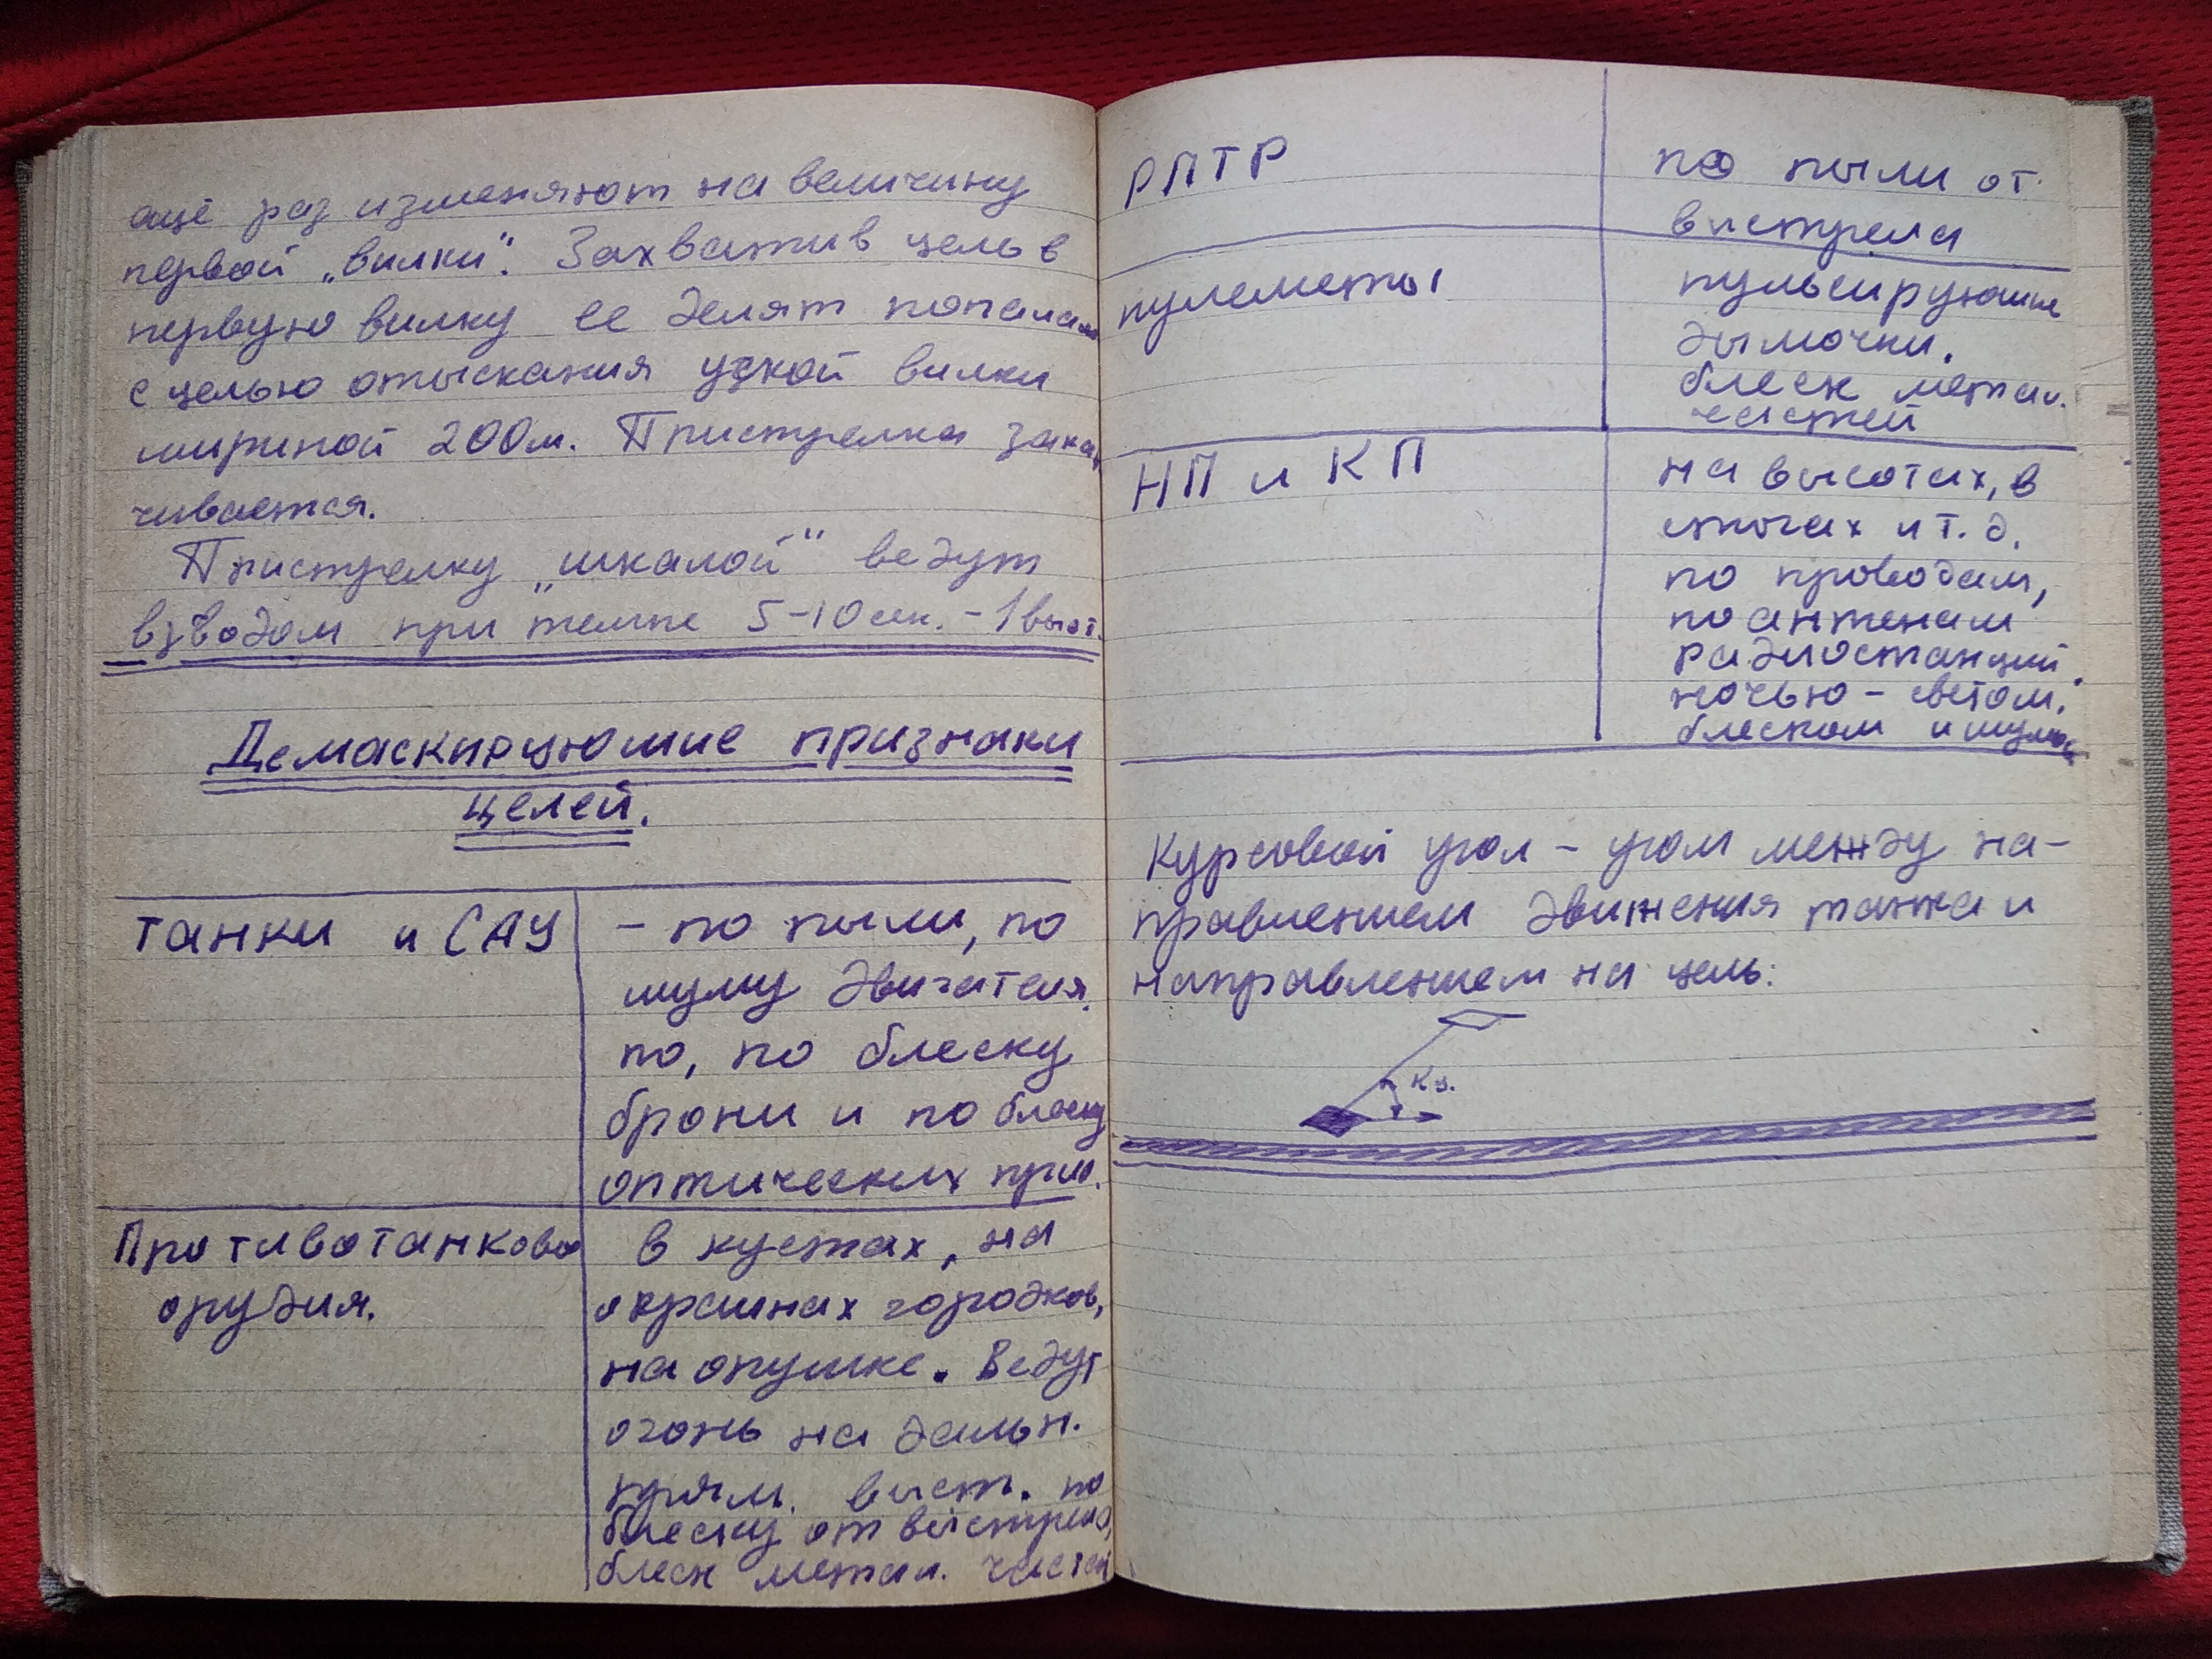 ещё раз изменяют на величину
первой „вилки“. Захватив цель в
первую вилку ее делят пополам
с целью отыскания узкой вилки
шириной 200м. Пристрелка зака
чивается.
Пристрелку „шкалой“ ведут
взводом при темпе 5-10 сек. - 1 выст.
Демаскируюшие признаки
целей.
танки и САУ
- по пыли, по
шуму двигателя.
по, по блеску
брони и по блеску
оптических приб.
Противотанково
орудия.
в кустах, на
окраинах городков,
на опушке. Ведут
огонь на дальн.
прям. выст. по
блеску от выстрела,
блеск метал. частей
РПТР
по пыли от
выстрела
пулеметы
пульсируюшие
дымочки.
блеск метал.
частей
НП и КП
на высотах, в
стогах и т. д.
по проводам,
по антенам
радиостанций.
ночью - светом,
блеском и шумом
Курсовой угол - угол между на-
правлением движения танка и
направлением на цель:
Ку.